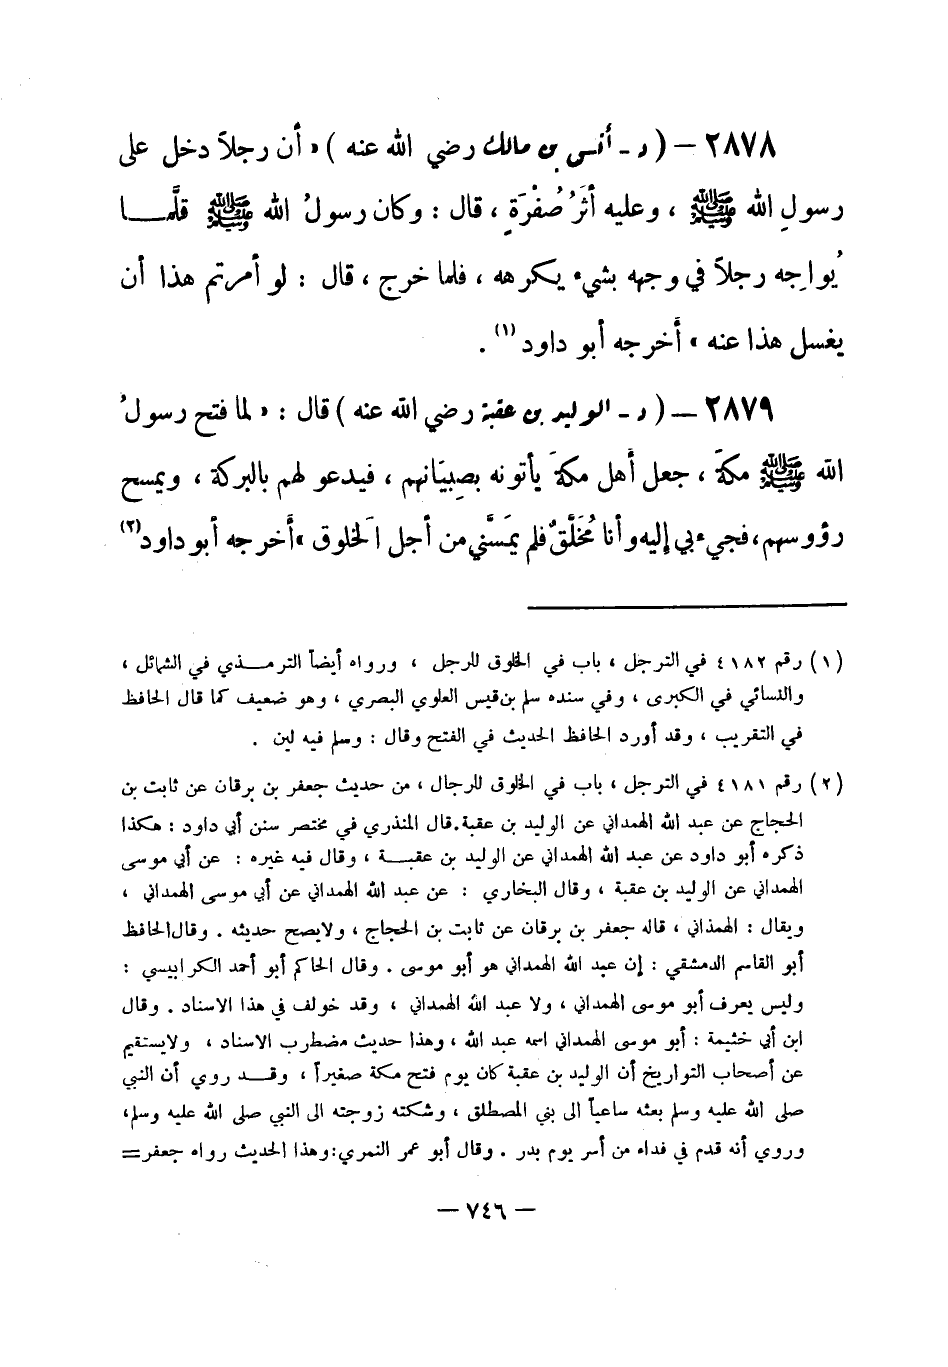 ٢٨٧٨ – ( د - أنس بن مالك رضي الله عنه ) « أن رجلاً دخل على
رسولِ الله ﷺ ، وعليه أثَرُ صُفْرَةٍ ، قال : وكان رسولُ الله ﷺ قلَّمـــا
يُواجِه رجلاً في وجهه بشيء يكرهه ، فلما خرج ، قال : لو أمرتم هذا أن
يغسل هذا عنه » أخرجه أبو داود (١) .
٢٨٧٩ – ( د - الوليد بن عقبة رضي الله عنه ) قال : « لما فتح رسولُ
الله ﷺ مكةَ ، جعل أهل مكةَ يأتونه بصِبيَانهم ، فيدعو لهم بالبركة ، ويمسح
رؤوسهم، فجيء بي إليه وأنا مُخَلَّقٌ فلم يمَسَّني من أجل الَخلوق » أخرجه أبو داود (٢)
(١) رقم ٤١٨٢ في الترجل ، باب في الخلوق للرجل ، ورواه أيضاً الترمــذي في الشمائل ،
والنسائي في الكبرى ، وفي سنده سلم بن قيس العلوي البصري ، وهو ضعيف كما قال الحافظ
في التقريب ، وقد أورد الحافظ الحديث في الفتح وقال : وسلم فيه لين .
(٢) رقم ٤١٨١ في الترجل ، باب في الخلوق للرجال ، من حديث جعفر بن برقان عن ثابت بن
الحجاج عن عبد الله الهمداني عن الوليد بن عقبة. قال المنذري في مختصر سنن أبي داود : هكذا
ذكره أبو داود عن عبد الله الهمداني عن الوليد بن عقبــة ، وقال فيه غيره : عن أبي موسى
الهمداني عن الوليد بن عقبة ، وقال البخاري : عن عبد الله الهمداني عن أبي موسى الهمداني ،
ويقال : الهمذاني ، قاله جعفر بن برقان عن ثابت بن الحجاج ، ولا يصح حديثه . وقال الحافظ
أبو القاسم الدمشقي : إن عبد الله الهمداني هو أبو موسى . وقال الحاكم أبو أحمد الكرابيسي :
وليس يعرف أبو موسى الهمداني ، ولا عبد الله الهمداني ، وقد خولف في هذا الاسناد . وقال
ابن أبي خثيمة : أبو موسى الهمداني اسمه عبد الله ، وهذا حديث مضطرب الاسناد ، ولا يستقيم
عن أصحاب التواريخ أن الوليد بن عقبة كان يوم فتح مكة صغيراً ، وقــد روي أن النبي
صلى الله عليه وسلم بعثه ساعياً الى بني المصطلق ، وشكته زوجته الى النبي صلى الله عليه وسلم،
وروي أنه قدم في فداء من أسر يوم بدر . وقال أبو عمر النمري: وهذا الحديث رواه جعفر =
– ٧٤٦ –